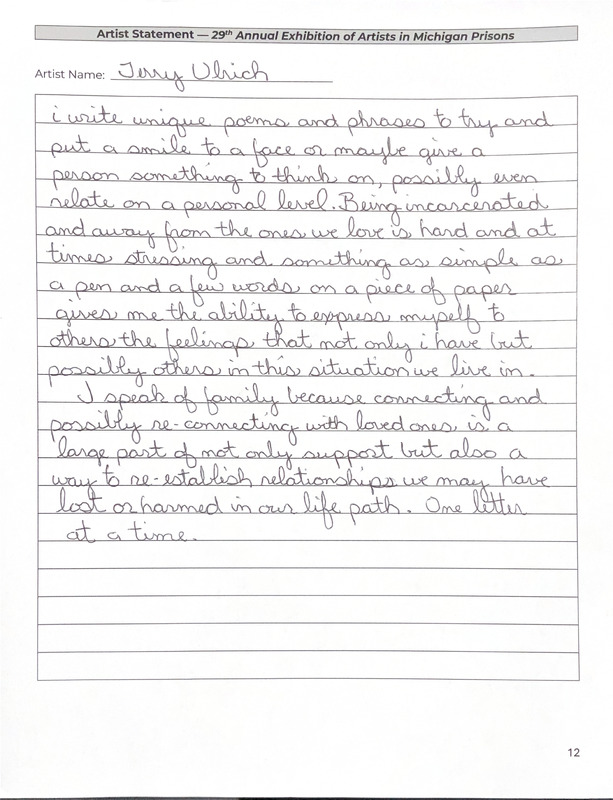 Artist Statement — 29th Annual Exhibition of Artists in Michigan Prisons
Artist Name: Jerry Ulrich
i write unique poems and phrases to try and
put a smile to a face or maybe give a
person something to think on, possibly even
relate on a personal level. Being incarcerated
and away from the ones we love is hard and at
times stressing and something as simple as
a pen and a few words on a piece of paper
gives me the ability to express myself to
others the feelings that not only i have but
possibly others in this situation we live in.
I speak of family because connecting and
possibly re-connecting with loved ones is a
large part of not only support but also a
way to re-establish relationships we may have
lost or harmed in our life path. One letter
at a time.
12